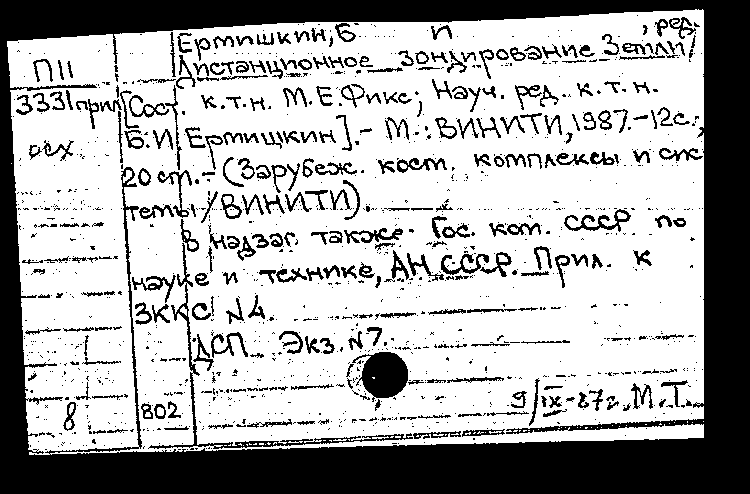 Ермишкин, Б И , ред.
П11 Дистанционное зондирование Земли /
3331 прил [Сост. к.т.н. М.Е. Фикс; Науч. ред. к.т.н.
осх Б.И. Ермишкин].- М.: ВИНИТИ, 1987.-12с.;
20 cm.- (Зарубеж. косм. комплексы и сис
темы / ВИНИТИ).
В надзаг. также: Гос. ком. СССР по
науке и технике, АН СССР. Прил. к
ЗККС N4.
ДСП Экз. N7.
8 802 9/IX-87г. М.Т.